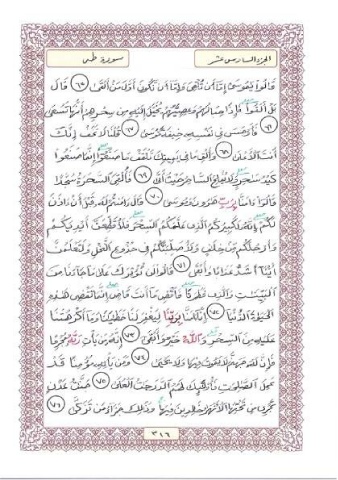 الجزء السادس عشر
سورة طه
قالوا يموسى إما أن تلقي وإما أن نكون أول من ألقى ٦٥ قال
بل ألقوا فإذا حبالهم وعصيهم يخيل إليه من سحرهم أنها تسعى
٦٦ فأوجس في نفسه خيفة موسى ٦٧ قلنا لا تخف إنك
أنت الأعلى ٦٨ وألق ما في يمينك تلقف ما صنعوا إنما صنعوا
كيد سحر ولا يفلح الساحر حيث أتى ٦٩ فألقي السحرة سجدا
قالوا ءامنا برب هرون وموسى ٧٠ قال ءامنتم له قبل أن ءاذن
لكم إنه لكبيركم الذي علمكم السحر فلأقطعن أيديكم
وأرجلكم من خلف ولأصلبنكم في جذوع النخل ولتعلمن
أينا أشد عذابا وأبقى ٧١ قالوا لن نؤثرك على ما جاءنا من
البينت والذي فطرنا فاقض ما أنت قاض إنما تقضي هذه
الحيوة الدنيا ٧٢ إنا ءامنا بربنا ليغفر لنا خطينا وما أكرهتنا
عليه من السحر والله خير وأبقى ٧٣ إنه من يأت ربه مجرما
فإن له جهنم لا يموت فيها ولا يحيى ٧٤ ومن يأته مؤمنا قد
عمل الصلحت فأولئك لهم الدرجت العلى ٧٥ جنت عدن
تجري من تحتها الأنهر خلدين فيها وذلك جزاء من تزكى ٧٦
٣١٦